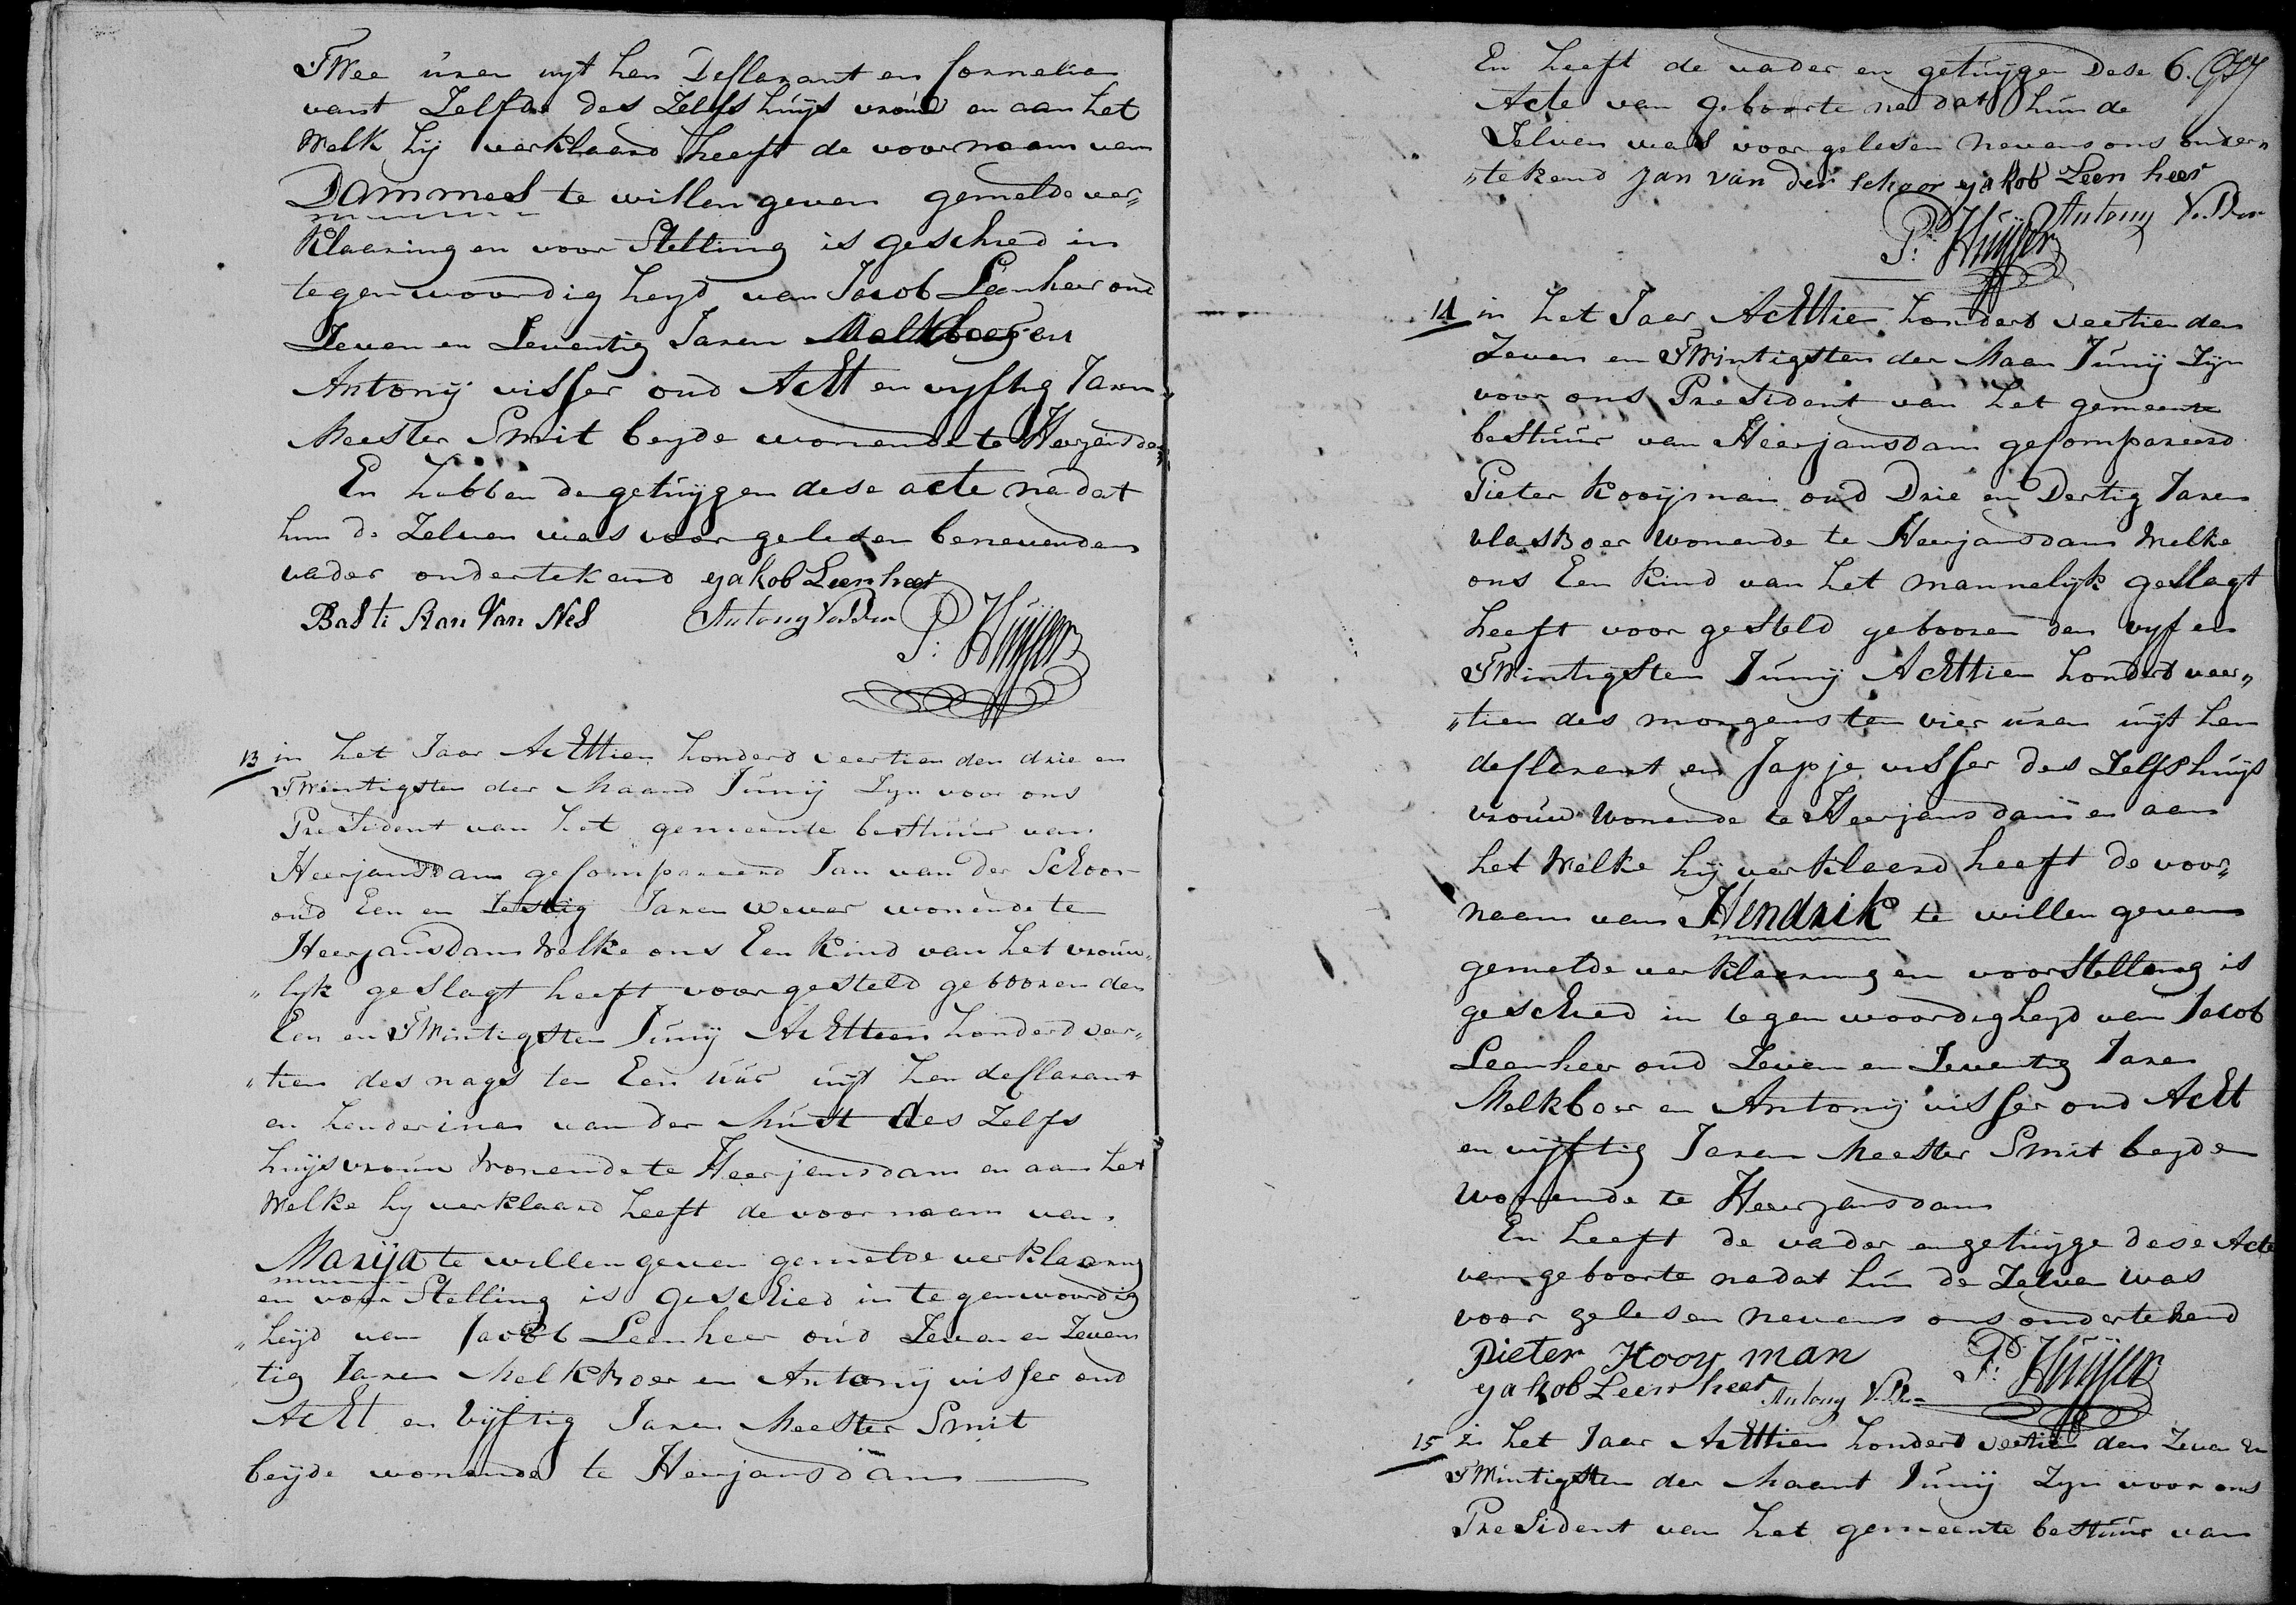 Twee uren uyt hem Declarant en Cornelia
vant Zelfde des Zelfs huys vrouw en aan het
Welk hij verklaard heeft de voornaam van
Dammes te willen geven gemelde ver„
klaaring en voor Stelling is geschied in
tegenwoordig heyd van Jacob Leenheer oud
Zeven en Zeventig Jaren Melkboer en
Antonij visser oud Acht en vyftig Jaren
Meester Smit beyde wonende te Heerjansdam
En hebben de getuygen dese acte na dat
hun de Zelven was voor gelesen benevens den
vader ondertekend yakob Leenheer
Basti Aan Van Nes Antony Visser P: Huijser
13 in het Jaar Achttien honderd veertien den drie en
Twintigsten der Maand Junij Zyn voor ons
President van het gemeente bestuur van
Heerjansdam gecompareerd Jan van der Schoor
oud Een en Zestig Jaren wever wonende te
Heerjansdam Welke ons Een Kind van het vrouw„
„lyk geslagt heeft voor gesteld gebooren den
Een en Twintigsten Junij Achttien honderd veer„
„tien des nags ten Een uur uyt hem declarant
en henderina van der Must des Zelfs
huysvrouw Wonende te Heerjansdam en aan het
Welke hy verklaard heeft de voornaam van
Marija te willen geven gemelde verklaaring
en voor Stelling is geschied in tegenwoordig
„heyd van Jacob Leenheer oud Zeven en Zeven
tig Jaren Melkboer en Antonij visser oud
Acht en Vyftig Jaren Meester Smit
beyde wonende te Heerjansdam
En heeft de vader en getuygen Dese 6.
Acte van geboorte na dat hun de
Zelven was voor gelesen nevens ons onder„
„tekend Jan van der schoor yakob Leen heer
P: Huijser Antony Visser
14 in het Jaar Achttien honderd veertien den
Zeven en Twintigsten der Maan Junij Zyn
voor ons President van het gemeente
bestuur van Heerjansdam gecompareerd
Pieter Kooijman oud Drie en Dertig Jaren
vlasBoer wonende te Heerjansdam Welke
ons Een Kind van het mannelijk geslagt
heeft voor gesteld gebooren den vyf en
Twintigsten Junij Achttien honderd veer„
„tien des morgens ten vier uren uyt hem
declarant en Japje visser des Zelfs huys
vrouw Wonende te Heerjansdam en aan
het Welke hij verklaard heeft de voor„
naam van Hendrik te willen geven
gemelde verklaaring en voorstelling is
geschied in tegenwoordigheyd van Jacob
Leenheer oud Zeven en Zeventig Jaren
Melkboer en Antonij visser oud Acht
en vijftig Jaren Meester Smit beyde
wonende te Heerjansdam
En heeft de vader en getuyge dese Acte
van geboorte na dat hun de Zelven was
voor gelesen nevens ons ondertekend
Pieter Kooy man P: Huijser
yakob Leen heer Antony Visser
15 in het Jaar Achttien honderd veertien den Zeven en
Twintigsten der Maant Junij Zyn voor ons
President van het gemeente bestuur van